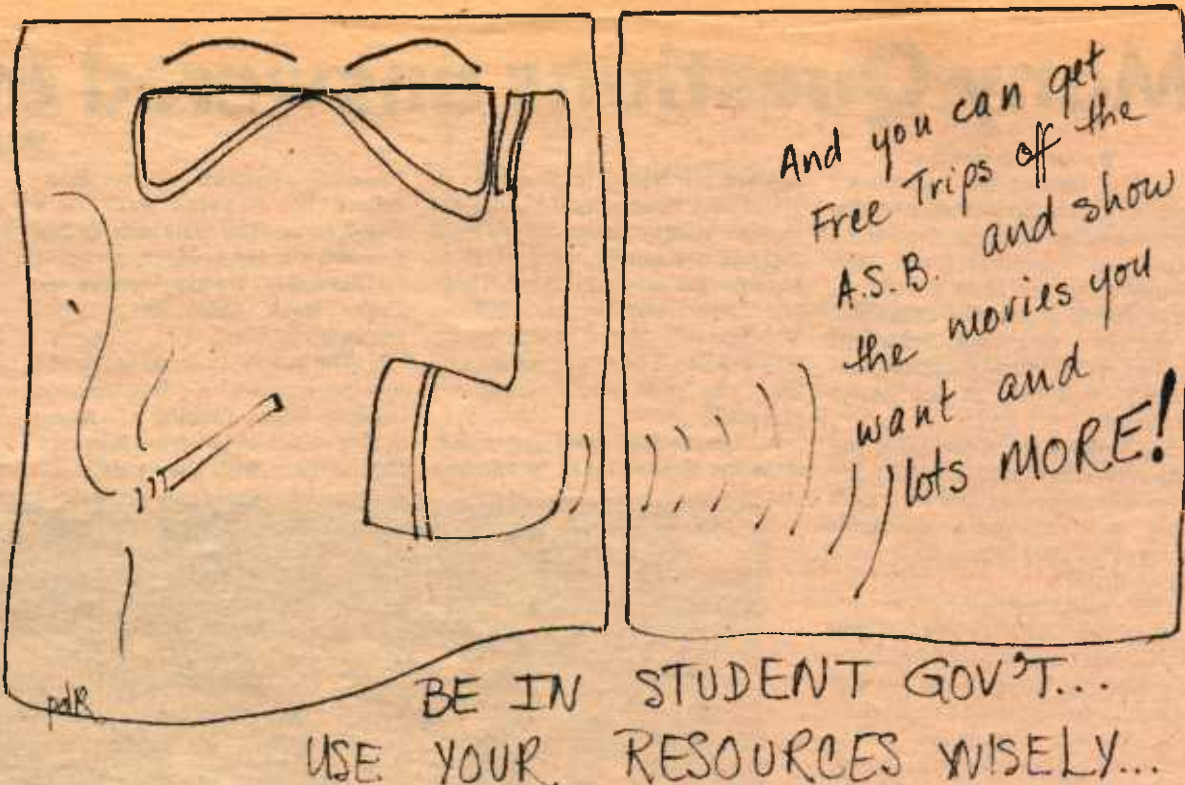 And you can get
Free Trips off the
A.S.B. and show
the movies you
want and
lots MORE!
BE IN STUDENT GOV'T...
USE YOUR RESOURCES WISELY...